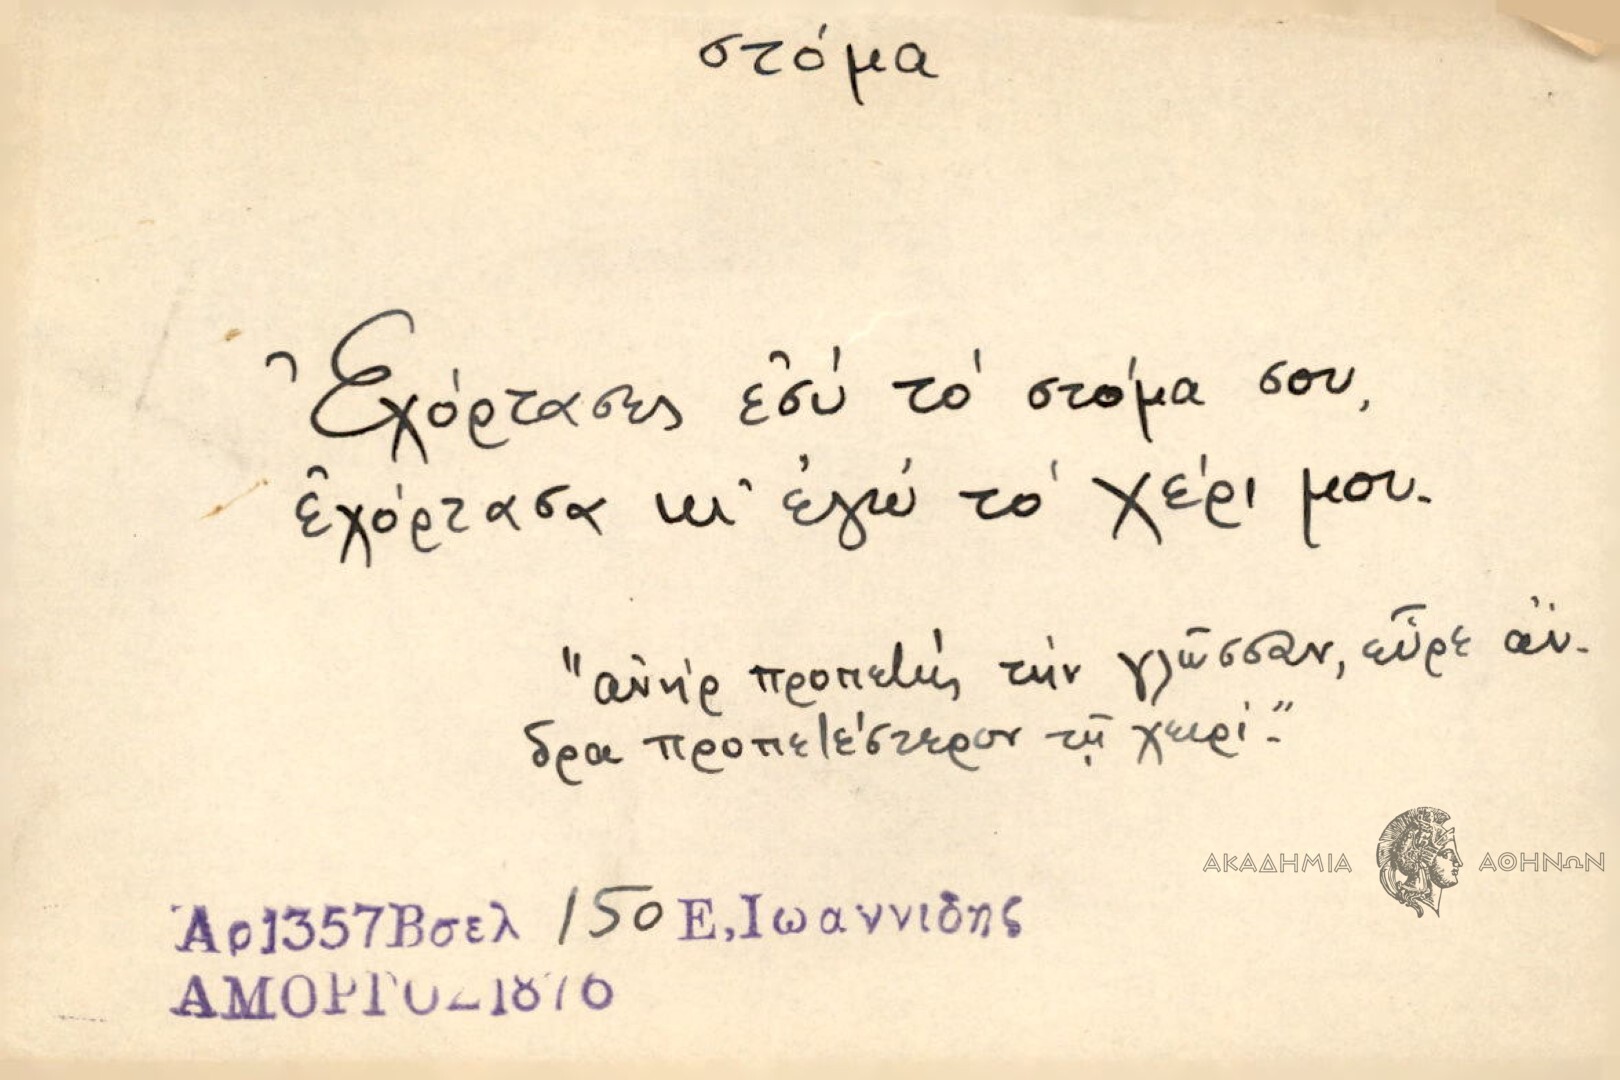 στόμα
Ἐχόρτασες ἐσύ τό στόμα σου,
ἐχόρτασα κι' ἐγώ τό χέρι μου.
"ἀνήρ προπετής τήν γλῶσσαν, εὗρε ἄν-
δρα προπετέστερον τῇ χειρί."
ΑΚΑΔΗΜΙΑ ΑΘΗΝΩΝ
Ἀρ1357Βσελ 150 Ε,Ιωαννιδης
ΑΜΟΡΓΟΣ1876